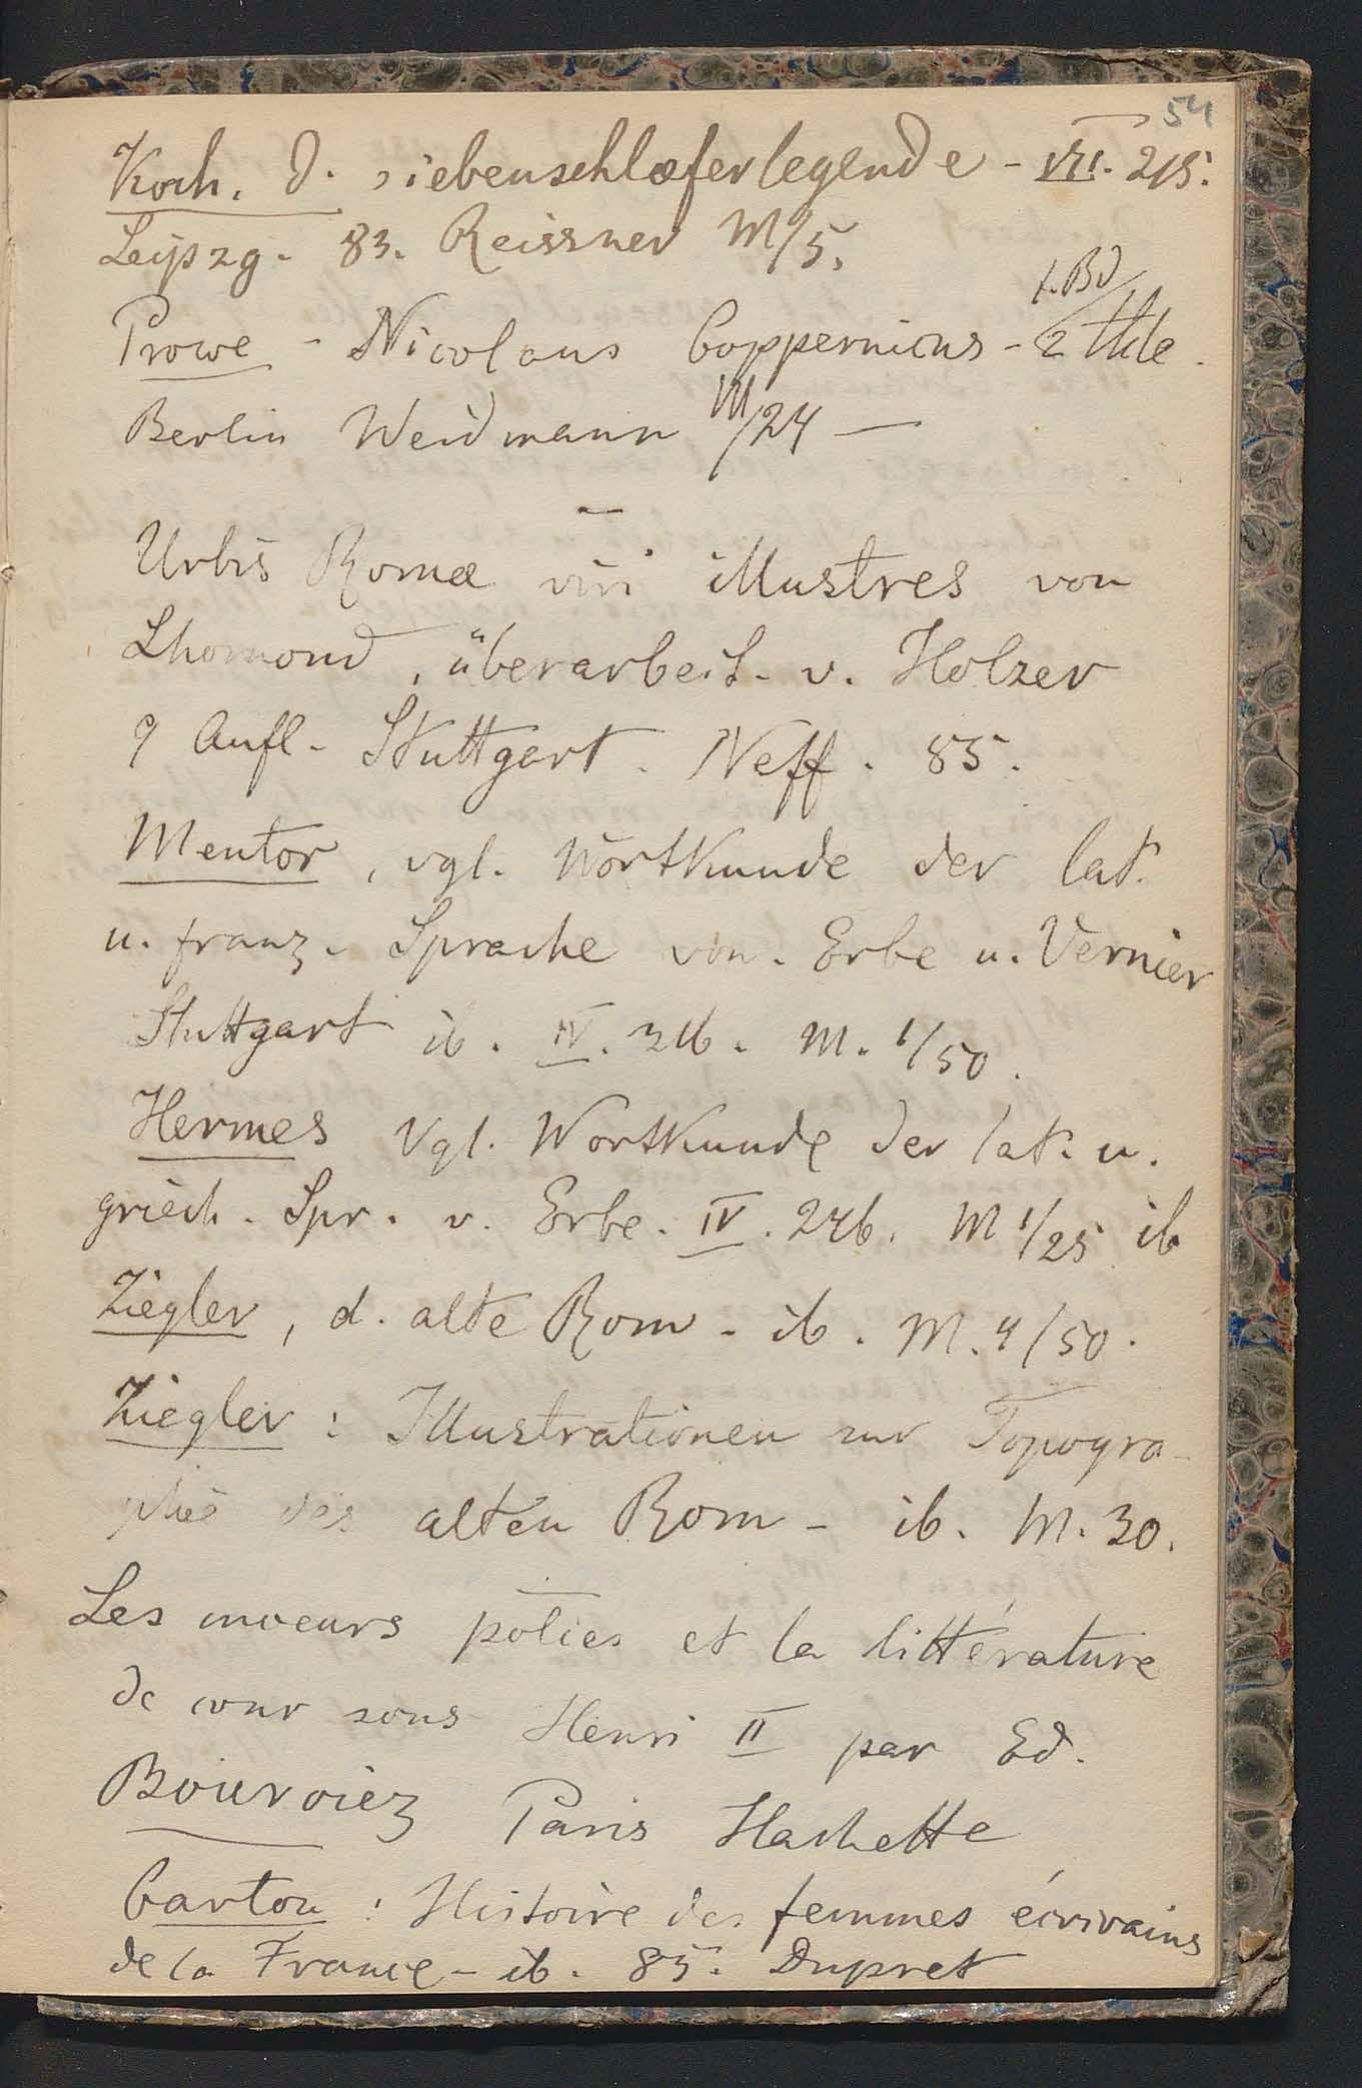 54
Koch. d. siebenschlæferlegende - VII. 215.
Leipzg. 83. Reissner M/5.
1. Bd
Prowe - Nicolaus Coppernicus - 2 Thle.
Berlin Weidmann M/24 —
Urbis Romæ viri illustres von
Lhomond, überarbeit. v. Holzer
9 Aufl. Stuttgart. Neff. 85.
Mentor, vgl. Wortkunde der lat.
u. franz. Sprache von. Erbe u. Vernier
Stuttgart ib. IV. 316. M. 1/50.
Hermes Vgl. Wortkunde der lat. u.
griech. Spr. v. Erbe. IV. 246. M 1/25 ib
Ziegler, d. alte Rom - ib. M. 4/50.
Ziegler: Illustrationen zur Topogra-
phie des alten Rom - ib. M. 30.
Les moeurs polies et la littérature
de cour sous Henri II par Ed.
Bourciez Paris Hachette
Carton: Histoire des femmes écrivains
de la France - ib. 85. Dupret